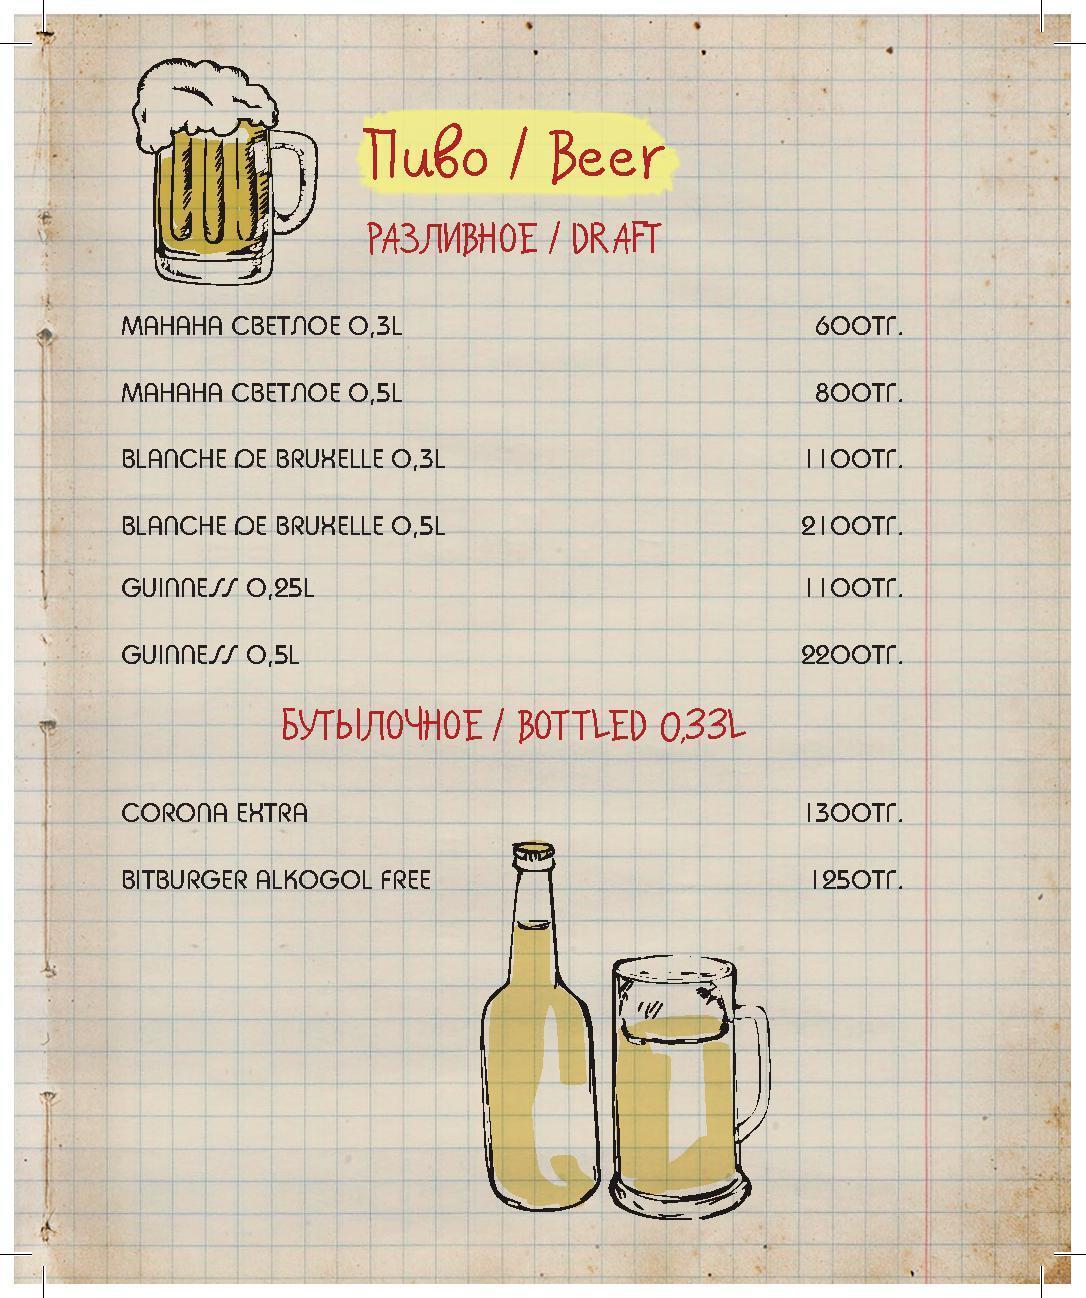 Пиво / Beer
РАЗЛИВНОЕ / DRAFT
МАНАНА СВЕТЛОЕ 0,3L 600ТГ.
МАНАНА СВЕТЛОЕ 0,5L 800ТГ.
BLANCHE DE BRUXELLE 0,3L 1100ТГ.
BLANCHE DE BRUXELLE 0,5L 2100ТГ.
GUINNESS 0,25L 1100ТГ.
GUINNESS 0,5L 2200ТГ.
БУТЫЛОЧНОЕ / BOTTLED 0,33L
CORONA EXTRA 1300ТГ.
BITBURGER ALKOGOL FREE 1250ТГ.